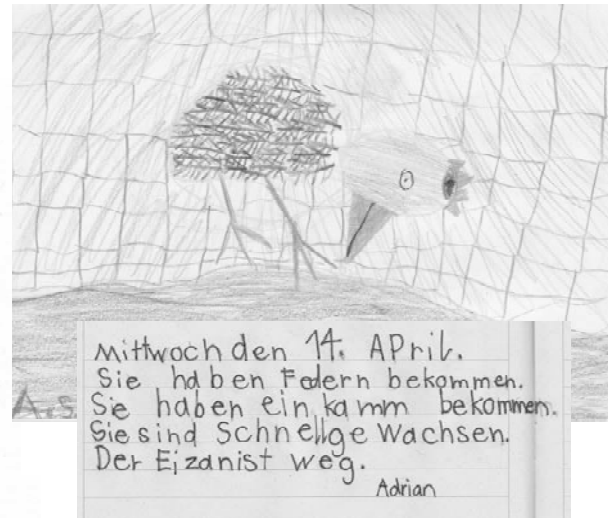 Mittwoch den 14. APril.
Sie haben Federn bekommen.
A.S.
Sie haben ein kamm bekommen.
Sie sind Schnellge Wachsen.
Der Eizanist weg.
Adrian